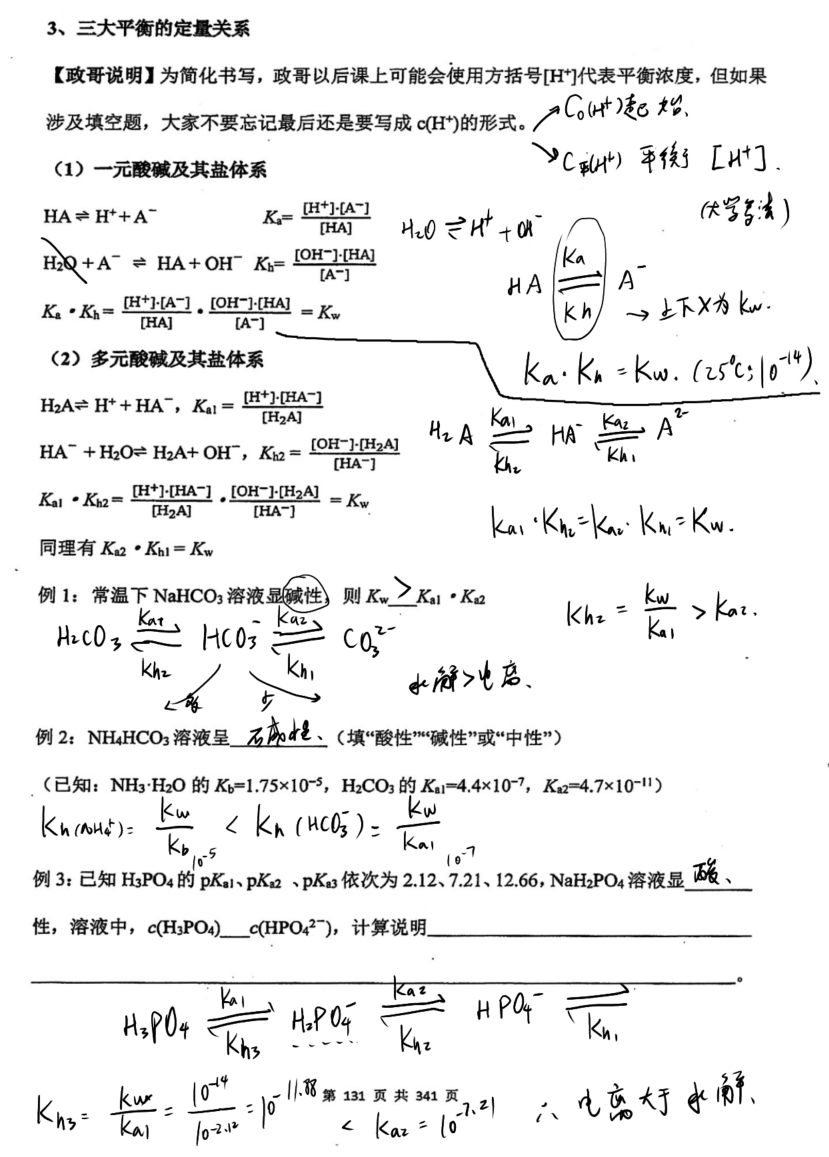 3、三大平衡的定量关系
【政哥说明】为简化书写，政哥以后课上可能会使用方括号[H⁺]代表平衡浓度，但如果
涉及填空题，大家不要忘记最后还是要写成 c(H⁺)的形式。
C₀(H⁺)起始、
C平(H⁺) 平衡 [H⁺].
(大学写法)
（1）一元酸碱及其盐体系
HA ⇌ H⁺ + A⁻ Kₐ= [H⁺]·[A⁻]/[HA]
H₂O ⇌ H⁺ + OH⁻
H₂O + A⁻ ⇌ HA + OH⁻ Kₕ= [OH⁻]·[HA]/[A⁻]
HA Ka ⇌ Kh A⁻
→ 上下X为 Kw.
Kₐ・Kₕ= [H⁺]·[A⁻]/[HA] · [OH⁻]·[HA]/[A⁻] = Kw
Ka·Kh = Kw. (25℃; 10⁻¹⁴)
（2）多元酸碱及其盐体系
H₂A⇌ H⁺ + HA⁻，Kₐ₁ = [H⁺]·[HA⁻]/[H₂A]
H₂A Ka₁ ⇌ Kh₂ HA⁻ Ka₂ ⇌ Kh₁ A²⁻
HA⁻ + H₂O⇌ H₂A+ OH⁻，Kₕ₂ = [OH⁻]·[H₂A]/[HA⁻]
Kₐ₁・Kₕ₂= [H⁺]·[HA⁻]/[H₂A] · [OH⁻]·[H₂A]/[HA⁻] = Kw
Ka₁·Kh₂=Ka₂·Kh₁=Kw.
同理有 Kₐ₂・Kₕ₁ = Kw
例 1：常温下 NaHCO₃ 溶液显碱性，则 Kw > Kₐ₁・Kₐ₂
Kh₂ = Kw/Ka₁ > Ka₂.
H₂CO₃ Ka₁ ⇌ Kh₂ HCO₃⁻ Ka₂ ⇌ Kh₁ CO₃²⁻
水解>电离、
多 少
例 2：NH₄HCO₃ 溶液呈 碱性、（填“酸性”“碱性”或“中性”）
（已知：NH₃·H₂O 的 K_b=1.75×10⁻⁵，H₂CO₃ 的 Kₐ₁=4.4×10⁻⁷，Kₐ₂=4.7×10⁻¹¹）
Kh(NH₄⁺)= Kw/Kb 10⁻⁵ < Kh (HCO₃⁻)= Kw/Ka₁ 10⁻⁷
例 3: 已知 H₃PO₄ 的 pKₐ₁、pKₐ₂ 、pKₐ₃ 依次为 2.12、7.21、12.66，NaH₂PO₄ 溶液显 酸、
性，溶液中，c(H₃PO₄)___c(HPO₄²⁻)，计算说明____
____。
H₃PO₄ Ka₁ ⇌ Kh₃ H₂PO₄⁻ Ka₂ ⇌ Kh₂ HPO₄⁻ ⇌ Kh₁
Kh₃= Kw/Ka₁ = 10⁻¹⁴/10⁻²·¹² = 10⁻¹¹·⁸⁸ < Ka₂ = 10⁻⁷·²¹ ∴ 电离大于水解、
第 131 页 共 341 页